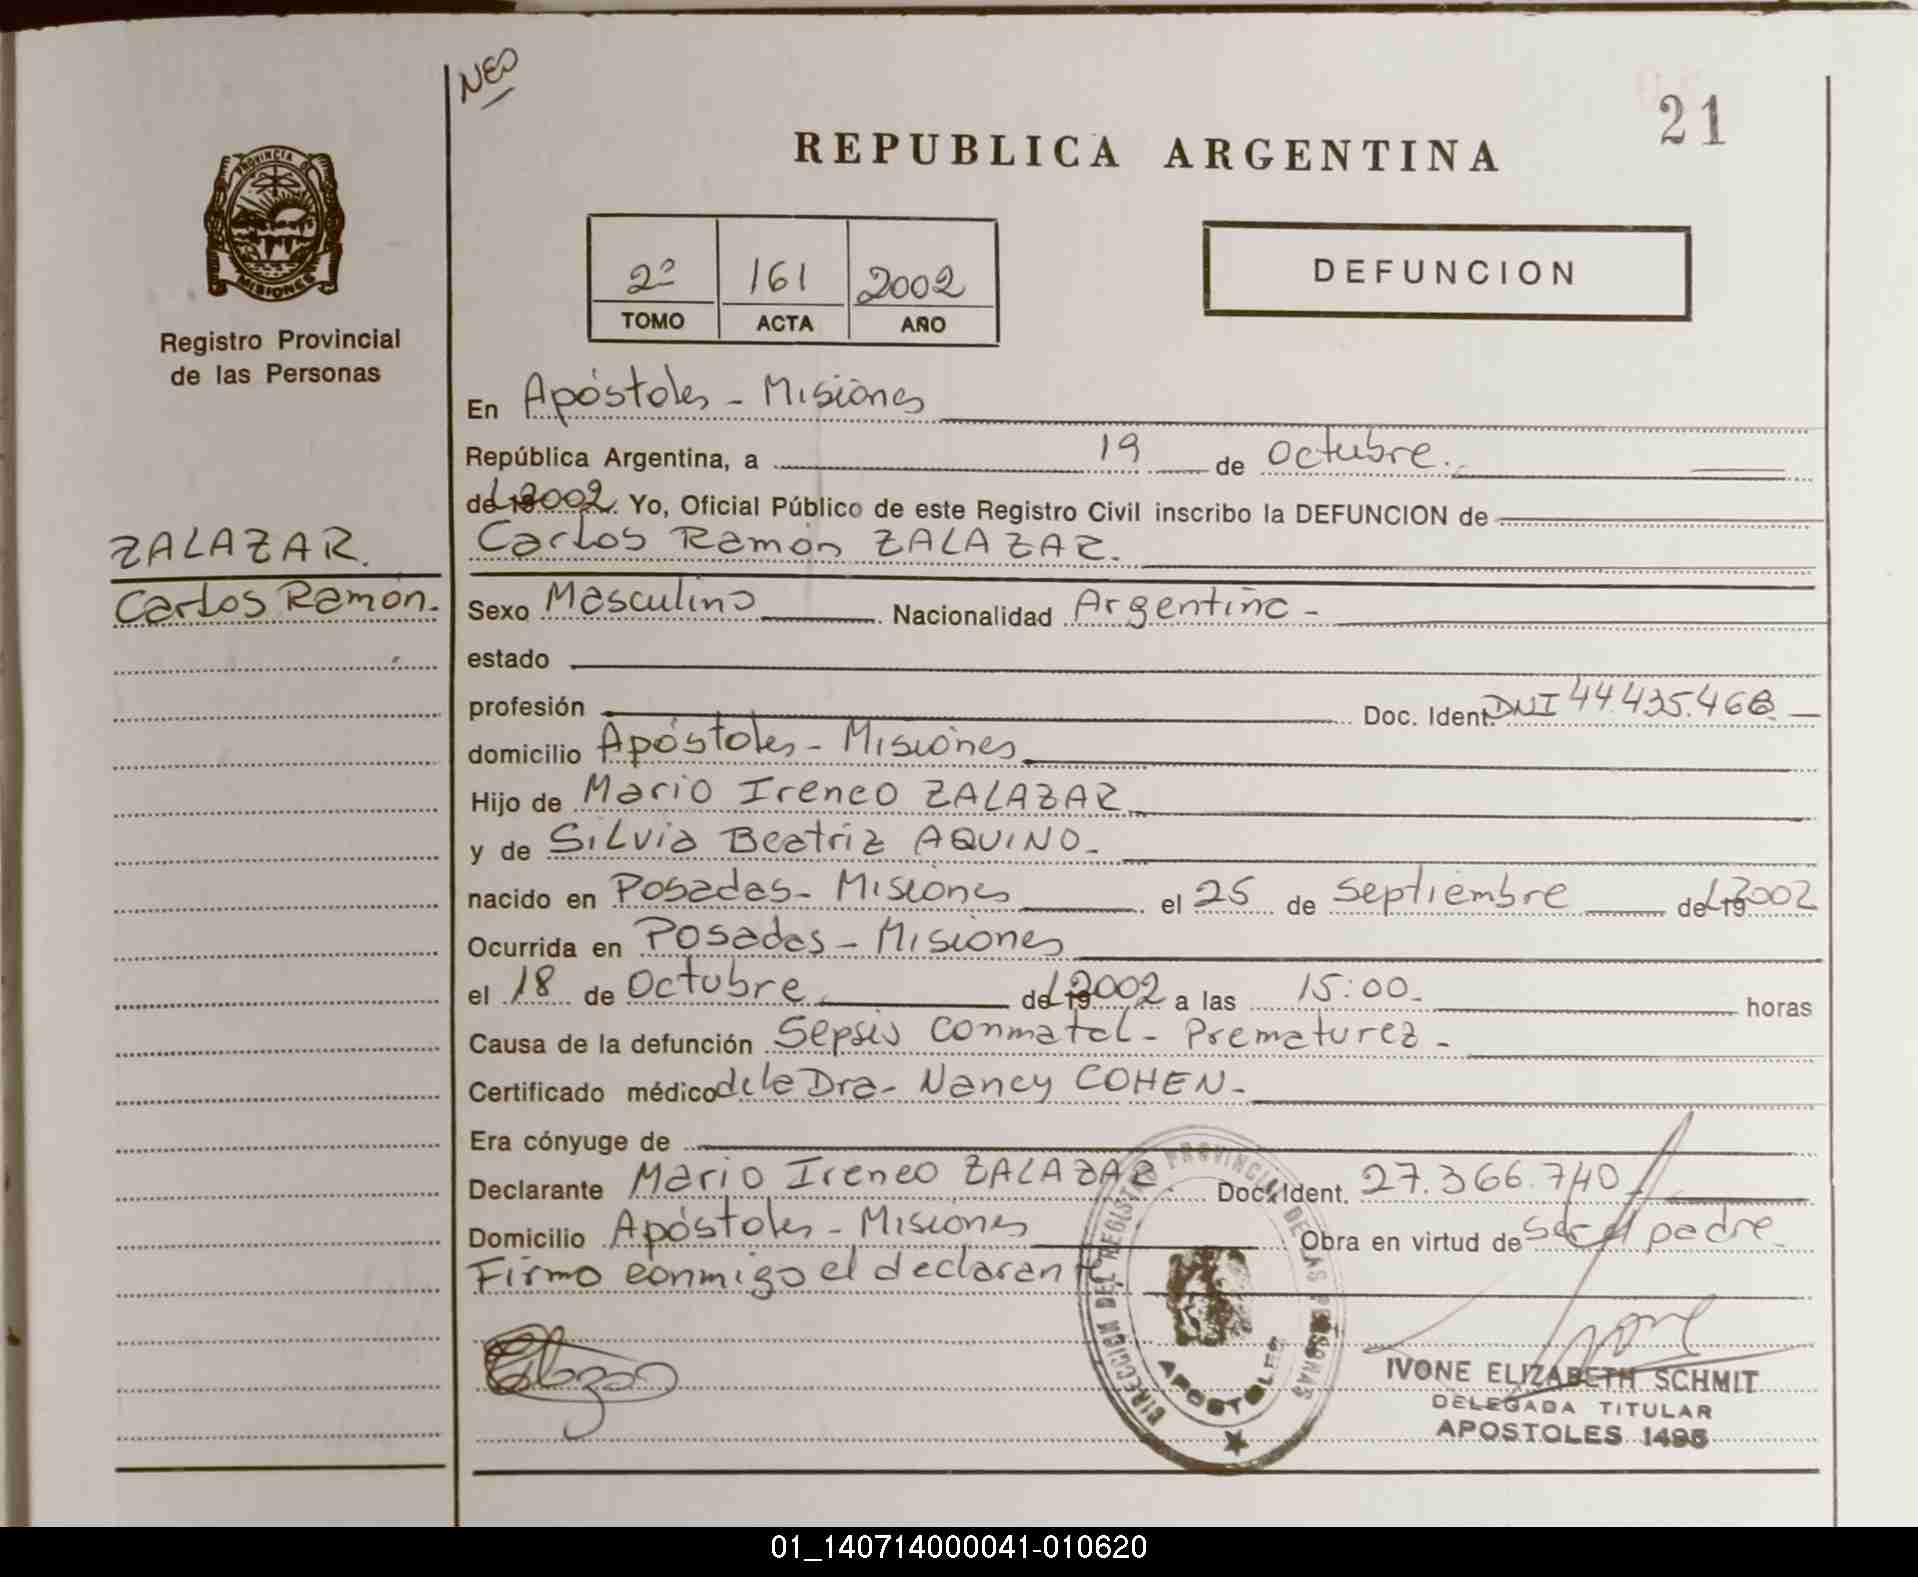 NEO
21
REPUBLICA ARGENTINA
PROVINCIA DE
MISIONES
Registro Provincial
de las Personas
2º 161 2002
TOMO ACTA AÑO
DEFUNCION
En Apóstoles - Misiones
República Argentina, a 19 de Octubre.
del 2002. Yo, Oficial Público de este Registro Civil inscribo la DEFUNCION de
ZALAZAR.
Carlos Ramón.
Carlos Ramón ZALAZAR.
Sexo Masculino Nacionalidad Argentina -
estado
profesión Doc. Ident. DNI 44.435.468
domicilio Apóstoles - Misiones
Hijo de Mario Ireneo ZALAZAR
y de Silvia Beatriz AQUINO -
nacido en Posadas - Misiones el 25 de Septiembre del 2002
Ocurrida en Posadas - Misiones
el 18 de Octubre del 2002 a las 15:00 - horas
Causa de la defunción Sepsis Connatal - Prematurez -
Certificado médico de la Dra - Nancy COHEN -
Era cónyuge de
Declarante Mario Ireneo ZALAZAR Doc. Ident. 27.366.740
Domicilio Apóstoles - Misiones Obra en virtud de ser el padre
Firmo conmigo el declarante
DIRECCION DEL REGISTRO PROVINCIAL DE LAS PERSONAS
APOSTOLES
IVONE ELIZABETH SCHMIT
DELEGADA TITULAR
APOSTOLES 1495
01_140714000041-010620